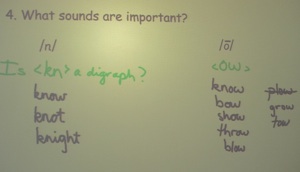 4. What sounds are important?
/n/
Is <kn> a digraph?
know
knot
knight
/ō/
<ow>
know
bow
show
throw
blow
plow
grow
tow